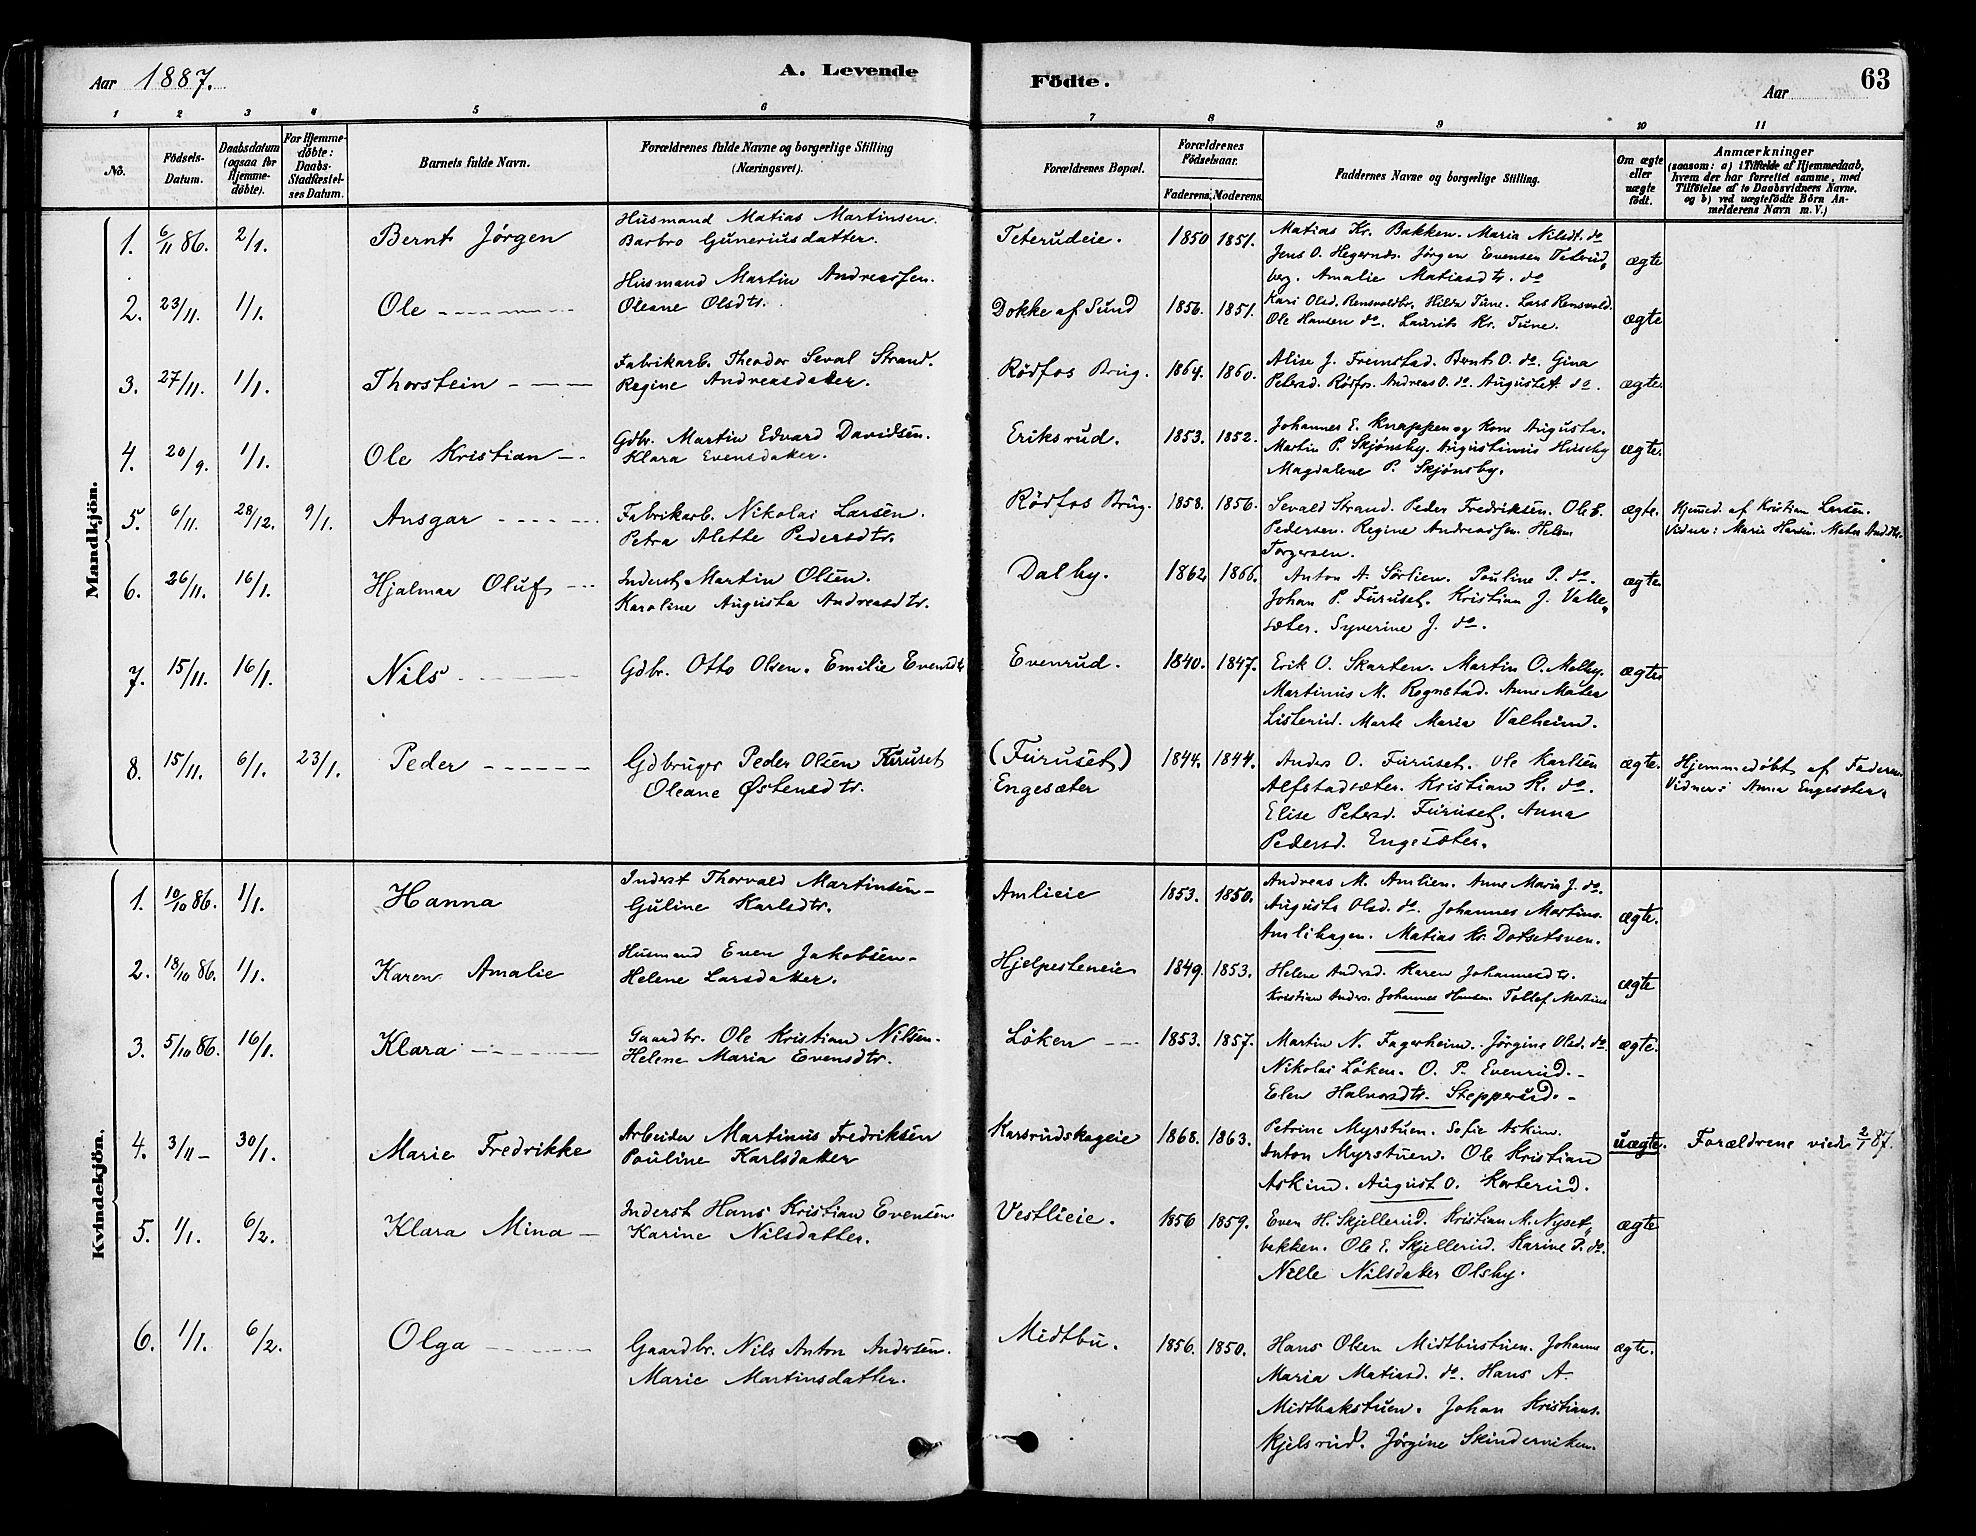 Aar 1887.
A. Levende
Födte.
63
Aar
1 2 3 4 5 6 7 8 9 10 11
No.
Födsels-Datum.
Daabsdatum (ogsaa for Hjemme-döbte).
For Hjemme-döbte: Daabs-Stadfæstelses Datum.
Barnets fulde Navn.
Forældrenes fulde Navne og borgerlige Stilling (Næringsvei).
Forældrenes Bopæl.
Forældrenes Födselsaar.
Faderens. Moderens.
Faddernes Navne og borgerlige Stilling.
Om ægte eller uægte födt.
Anmærkninger
(saasom: a) i Tilfælde af Hjemmedaab, hvem der har forrettet samme, med Tilföielse af to Daabsvidners Navne. og b) ved uægtefödte Börn Anmelderens Navn m. V.)
Mandkjön.
1. 6/11 86. 2/1. Bernt Jørgen
Husmand Matias Martinsen.
Barbro Guneriusdatter.
Teterudeie. 1850 1851.
Matias Kr. Bakken. Maria Nilsdt. do
Jens O. Hegernæs. Jørgen Evensen Teterud„
berg. Amalie Matiasdtr. do
ægte
2. 23/11. 1/1. Ole
Husmand Martin Andreassen.
Oleane Olsdtr.
Dokke af Sund 1856. 1851.
Kari Olsd. Rensvoldbr. Hilda Tune. Lars Rensvold.
Ole Hansen do. Laurits Kr. Tune.
ægte
3. 27/11. 1/1. Thorstein
Fabrikarb. Theodor Seval Strand.
Regine Andreasdatter.
Rødfos Brug. 1864. 1860.
Alise J. Fremstad. Bernt O. do. Gina
Petersd. Rødfos. Andreas O. do. Auguste A. do.
ægte.
4. 20/9. 1/1. Ole Kristian
Gdbr. Martin Edvard Davidsen.
Klara Evensdatter.
Eriksrud. 1853. 1852.
Johannes E. Knappen og Kone Augusta.
Martin P. Skjønsby. Augustinus Huseby
Magdalene P. Skjønsby.
ægte.
5. 6/11. 28/12. 9/1. Ansgar
Fabrikarb. Nikolai Larsen.
Petra Alette Pedersdtr.
Rødfos Brug. 1858. 1856.
Sevald Strand. Peder Fredriksen. Ole E.
Pedersen. Regine Andreassen. Helene
Torgersen.
ægte.
Hjemmed. af Kristian Larsen.
Vidner: Marie Hansen. Mathea
6. 26/11. 16/1. Hjalmar Oluf
Inderst Martin Olsen.
Karoline Augusta Andreasdtr.
Dalby. 1862 1866.
Anton A. Sørlien. Pauline P. do.
Johan P. Furuset. Kristian J. Valle„
sæter. Syverine J. do.
ægte.
7. 15/11. 16/1. Nils
Gdbr. Otto Olsen. Emilie Evensdtr
Evenrud. 1840. 1847.
Erik O. Skarten. Martin O. Melby.
Martinus M. Rognstad. Anne Mathea
Listerud. Marte Maria Valheim.
ægte
8. 15/11. 6/1. 23/1. Peder
Gdbruger Peder Olsen Furuset
Oleane Østensdtr.
(Furuset)
Engesæter
1844. 1844.
Anders O. Furuset. Ole Karlsen
Alfstadsæter. Kristian K. do.
Elise Petersd. Furuset. Anna
Pedersd. Engesæter.
ægte.
Hjemmedøbt af Faderen.
Vidner: Anna Engesæter.
Kvindekjön.
1. 10/10 86. 1/1. Hanna
Inderst Thorvald Martinsen
Guline Karlsdtr.
Amlieie 1853. 1850.
Andreas M. Amlien. Anne Maria J. do.
Augusta Olsd. do. Johannes Martins.
Amlihagen. Matias Kr. Dotsetsven.
ægte.
2. 18/10 86. 1/1. Karen Amalie
Husmand Even Jakobsen
Helene Larsdatter.
Hjelpesteneie 1849. 1853.
Helene Andrsd. Karen Johannesdtr.
Kristian Anders. Johannes Hansen. Tollef Martins
ægte
3. 5/10 86. 16/1. Klara
Gaardbr. Ole Kristian Nilsen.
Helene Maria Evensdtr.
Løken 1853. 1857.
Martin N. Fagerheim. Jørgine Olsd. do.
Nikolai Løken. O. P. Evenrud.
Elen Halvorsdtr. Stepperud.
ægte.
4. 3/11 30/1. Marie Fredrikke
Arbeider Martinus Fredriksen
Pauline Karlsdatter
Karsrudskageie 1868. 1863.
Petrine Myrstuen. Sofie Askim.
Anton Myrstuen. Ole Kristian
Askim. August O. Korterud.
uægte.
Forældrene viede 2/1 87.
5. 1/1. 6/2. Klara Mina
Inderst Hans Kristian Evensen
Karine Nilsdatter.
Vestlieie. 1856 1859.
Even H. Skjellerud. Kristian M. Nyset„
bakken. Ole E. Skjellerud. Karine P. do.
Nelle Nilsdatter Olsby.
ægte
6. 1/1. 6/2. Olga
Gaardbr. Nils Anton Andersen.
Marie Martinsdatter.
Midtbu. 1856. 1850.
Hans Olsen Midtbustuen. Johanne
Maria Matiasd. do. Hans A.
Midtbakstuen. Johan Kristians.
Kjelsrud. Jørgine Skinderviken.
ægte.